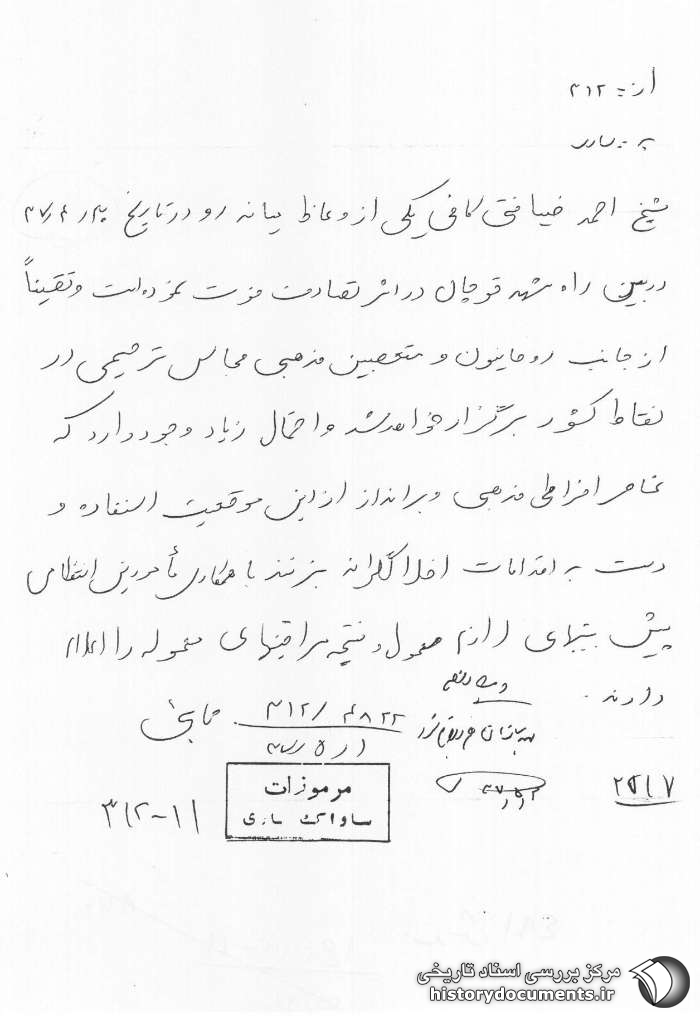 از: ۳۱۲
به: ساری
شیخ احمد ضیافتی کافی یکی از وعاظ میانه رو در تاریخ ۳۰ / ۴ / ۳۷
در بین راه مشهد قوچان در اثر تصادف فوت نموده است و یقیناً
از جانب روحانیون و متعصبین مذهبی مجالس ترحیمی در
نقاط کشور برگزار خواهد شد و احتمال زیاد وجود دارد که
عناصر افراطی مذهبی و برانداز از این موقعیت استفاده و
دست به اقدامات اخلالگرانه بزنند با همکاری مأمورین انتظامی
پیش بینیهای لازم معمول و نتیجه مراقبتهای معموله را اعلام
دارند.
۳۱۲/۴۸۲۲
ثابتی
مرموزات
ساواک ساری
۳۱۲-۱۱
۲۵۱۷
مرکز بررسی اسناد تاریخی
historydocuments.ir